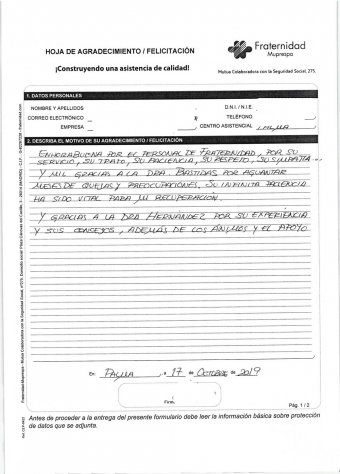 HOJA DE AGRADECIMIENTO / FELICITACIÓN
¡Construyendo una asistencia de calidad!
Fraternidad
Muprespa
Mutua Colaboradora con la Seguridad Social, 275
1. DATOS PERSONALES
NOMBRE Y APELLIDOS
D.N.I. / N.I.E.
CORREO ELECTRÓNICO
TELÉFONO
EMPRESA
CENTRO ASISTENCIAL
2. DESCRIBA EL MOTIVO DE SU AGRADECIMIENTO / FELICITACIÓN
ENHORABUENA POR EL PERSONAL DE FRATERNIDAD, POR SU
SERVICIO, SU TRATO, SU PACIENCIA, SU RESPETO, SU SIMPATÍA ...
Y MIL GRACIAS A LA DRA BASTIDAS POR AGUANTAR
MESES DE QUEJAS Y PREOCUPACIONES, SU INFINITA PACIENCIA
HA SIDO VITAL PARA MI RECUPERACION.
Y GRACIAS A LA DRA HERNANDEZ POR SU EXPERIENCIA
Y SUS CONSEJOS, ADEMÁS DE LOS ÁNIMOS Y EL APOYO
En PALMA, a 17 de OCTUBRE de 2019
Firm.
Pág. 1 / 2
Antes de proceder a la entrega del presente formulario debe leer la información básica sobre protección
de datos que se adjunta.